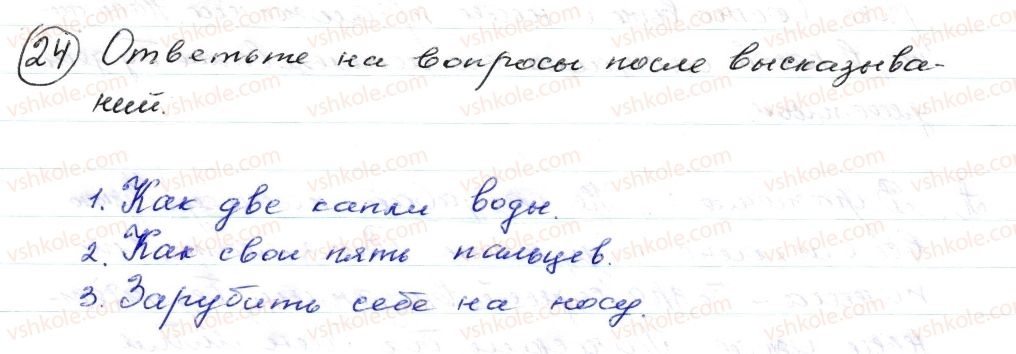 24 Ответьте на вопросы после высказыва-
ний.
1. Как две капли воды.
2. Как свои пять пальцев.
3. Зарубить себе на носу.